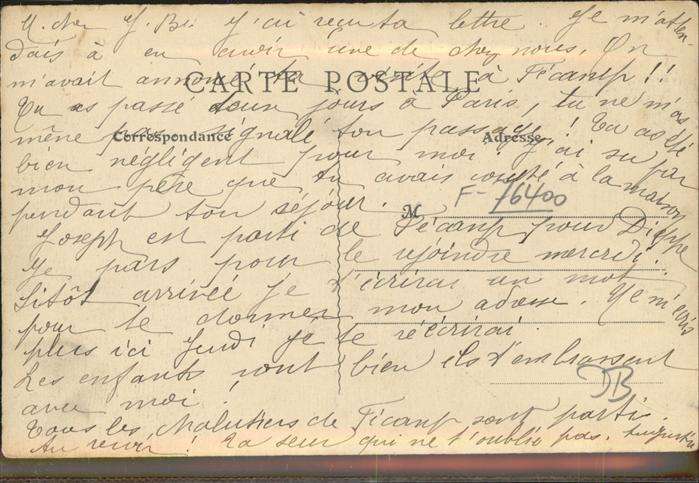 M. cher J. Bte. J'ai reçu ta lettre. Je m'atten
dais à en avoir une de chez nous. On
m'avait annoncé ta visite à Fécamp!!
CARTE POSTALE
Tu as passé deux jours à Paris, tu ne m'as
même pas signalé ton passage! Tu as été
Correspondance
Adresse
bien négligent pour moi. J'ai su par
mon père que tu avais été à la maison
F-76400
pendant ton séjour.
M
Joseph est parti de Fécamp pour Dieppe
Je pars pour le rejoindre mercredi.
Sitôt arrivée je t'écrirai un mot
pour te donner mon adresse. Ne m'écris
plus ici Jeudi je te récrirai.
Les enfants vont bien ils t'embrassent
avec moi.
DB
Tous les Chalutiers de Fécamp sont partis.
Au revoir! Ta sœur qui ne t'oublie pas. Augusta